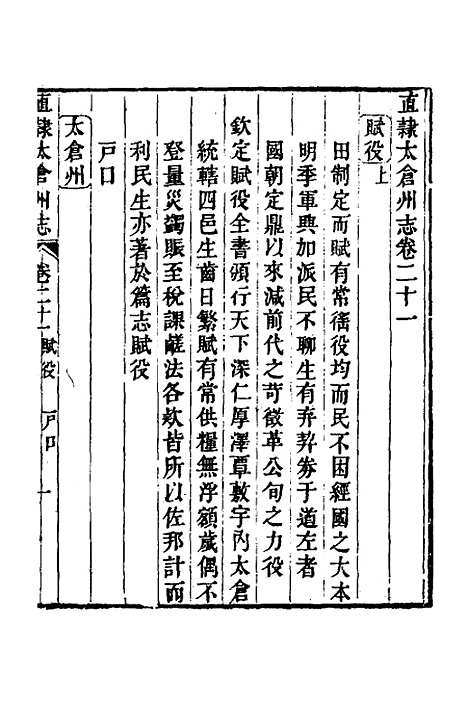 直隸太倉州志卷二十一
賦役上
田制定而賦有常徭役均而民不困經國之大本
明季軍興加派民不聊生有弃契劵于道左者
國朝定鼎以來減前代之苛徵革公旬之力役
欽定賦役全書頒行天下深仁厚澤覃敷宇內太倉
統轄四邑生齒日繁賦有常供糧無浮額歲偶不
登量災蠲賑至稅課鹺法各欵皆所以佐邦計而
利民生亦著於篇志賦役
戸口
太倉州
直隸太倉州志 卷二十一 賦役 戸口 一